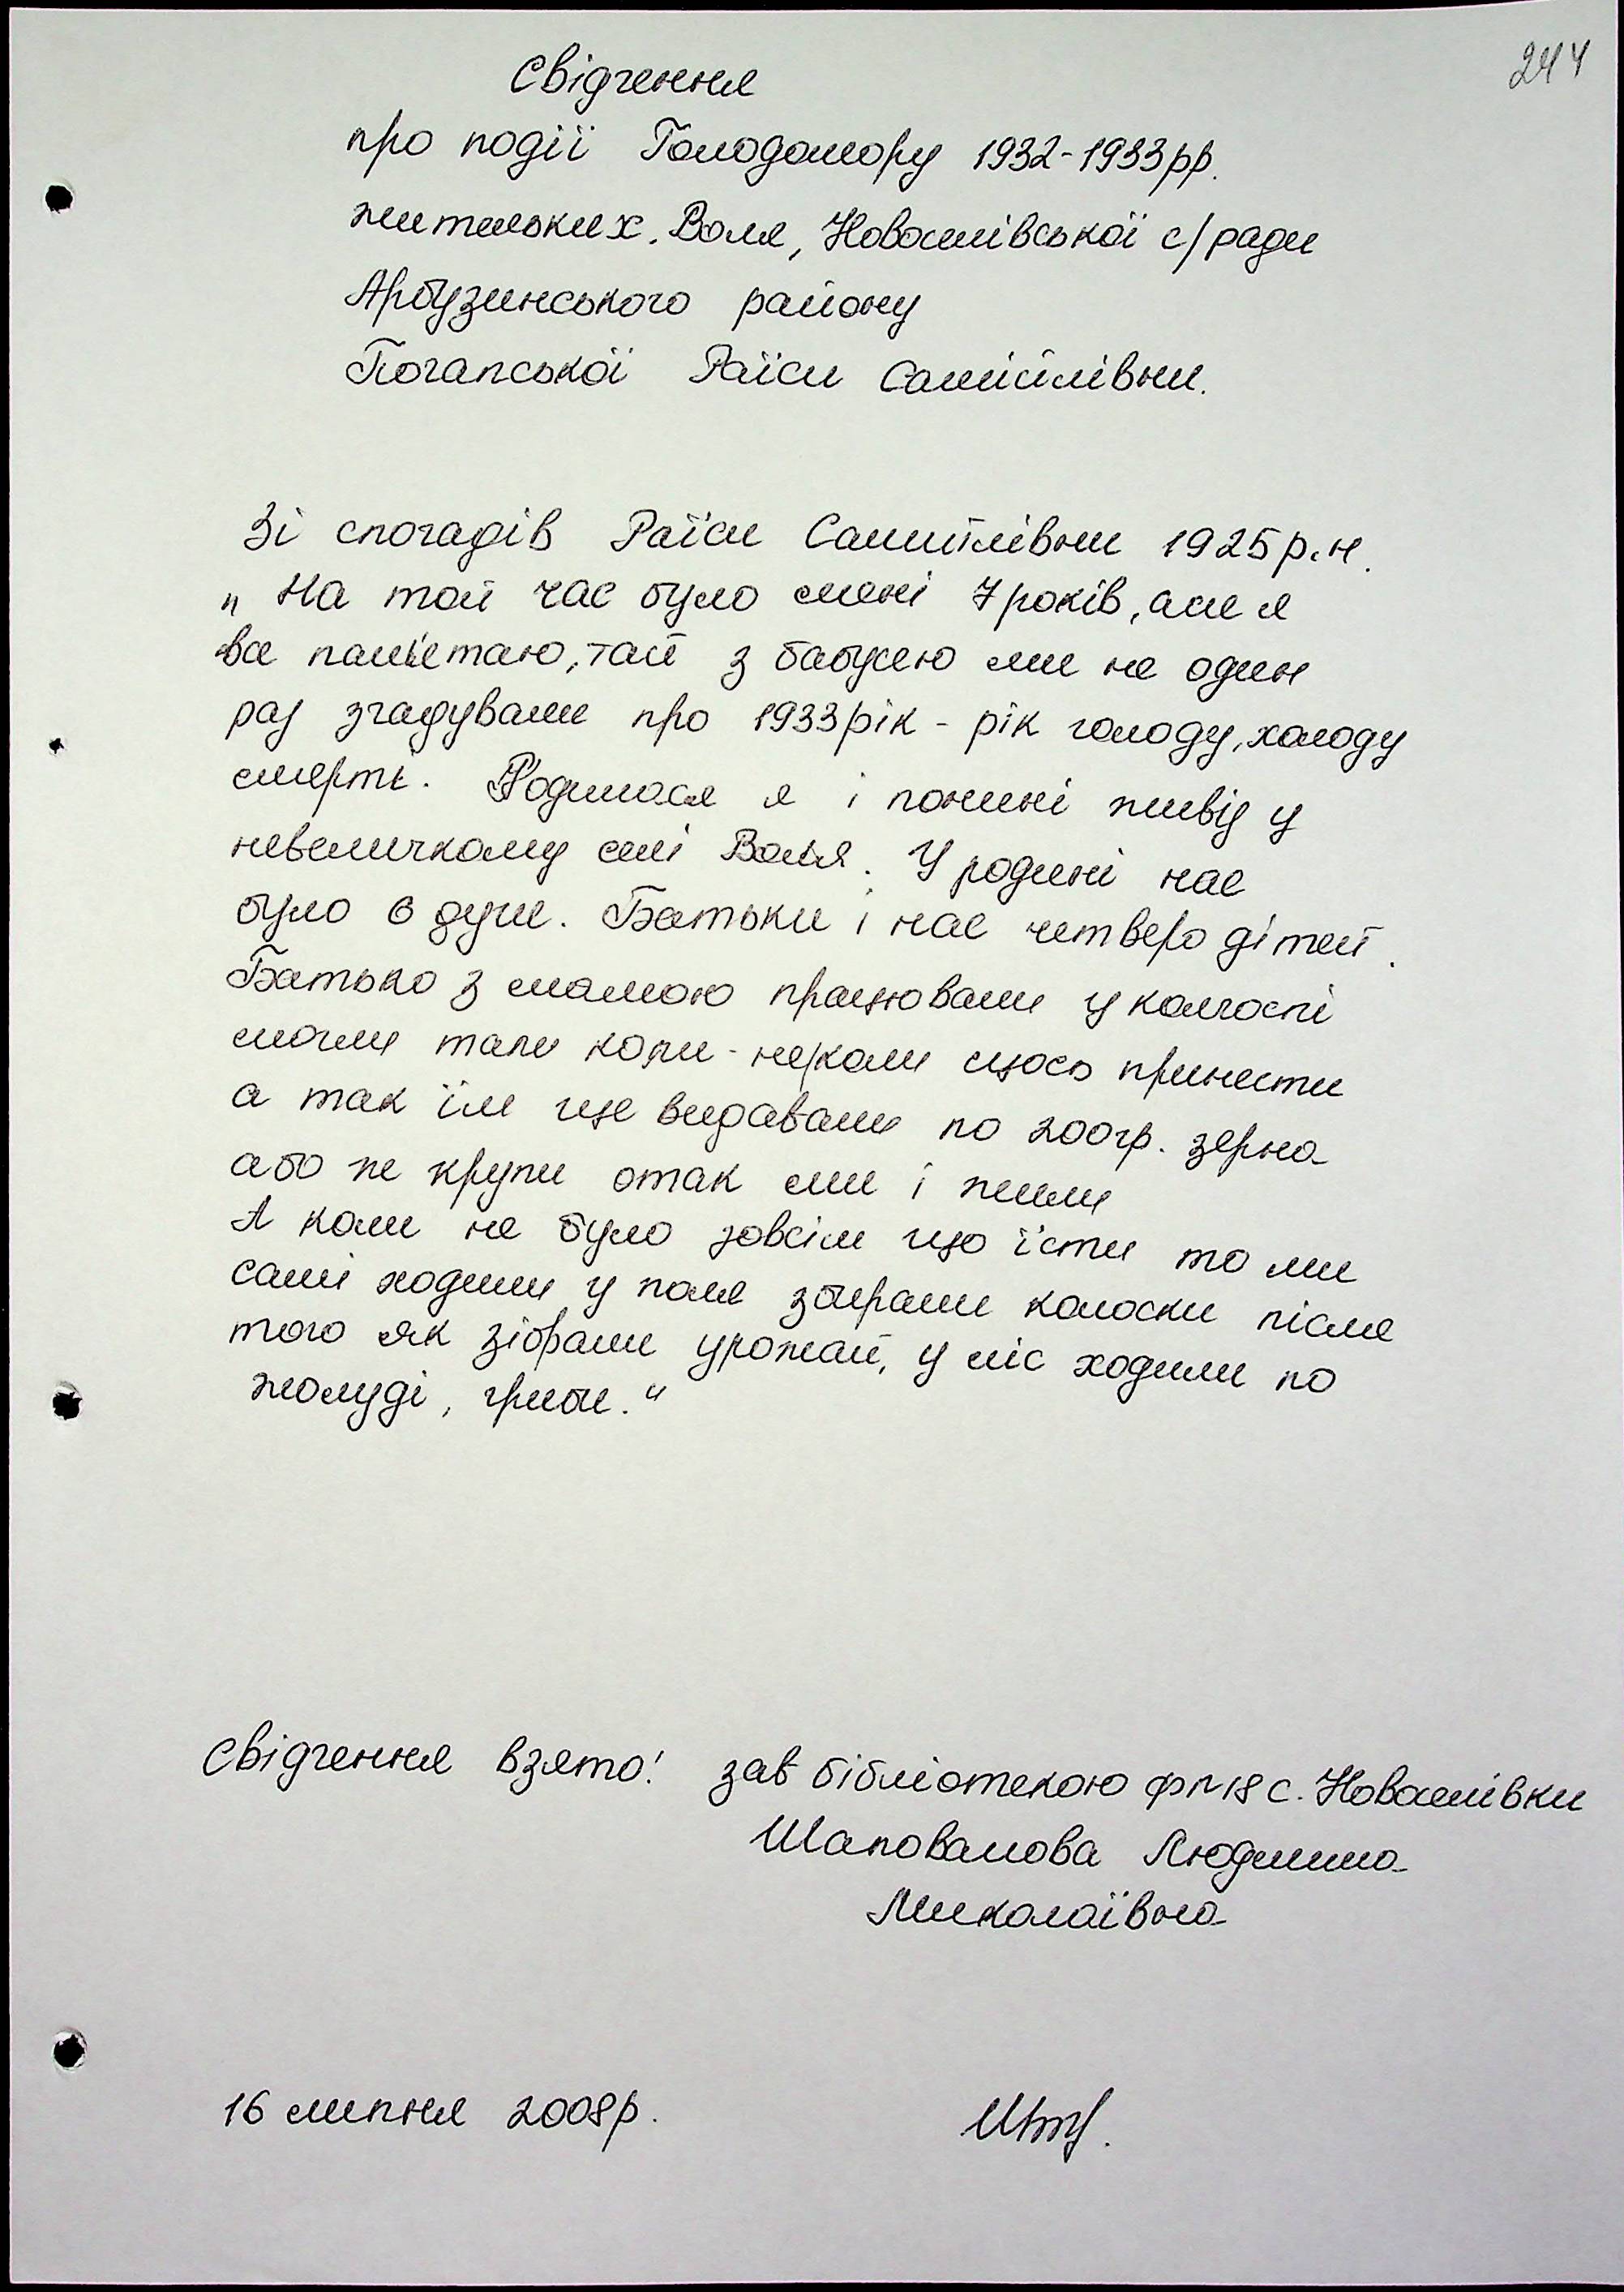 244
Свідчення
про події Голодомору 1932-1933рр.
жительки х. Воля, Новоселівської с/ради
Арбузинського району
Погапської Раїси Самійлівни.
Зі спогадів Раїси Самійлівни 1925р.н.
„ На той час було мені 7 років, але я
все пам'ятаю, тай з бабусею ми не один
раз згадували про 1933 рік - рік голоду, холоду
смерті. Родилася я і понині живу у
невеличкому селі Воля. У родині нас
було 6 душ. Батьки і нас четверо дітей.
Батько з мамою працювали у колгоспі
могли тали коли-неколи щось принести
а так їм ще видавали по 200гр. зерна
або же крупи отак ми і жили
А коли не було зовсім що їсти то ми
самі ходили у поле збирали колоски після
того як зібрали урожай, у ліс ходили по
жолуді, гриби."
Свідчення взято: зав бібліотекою ф№18 с. Новоселівки
Шаповалова Людмила
Миколаївна
16 липня 2008р.